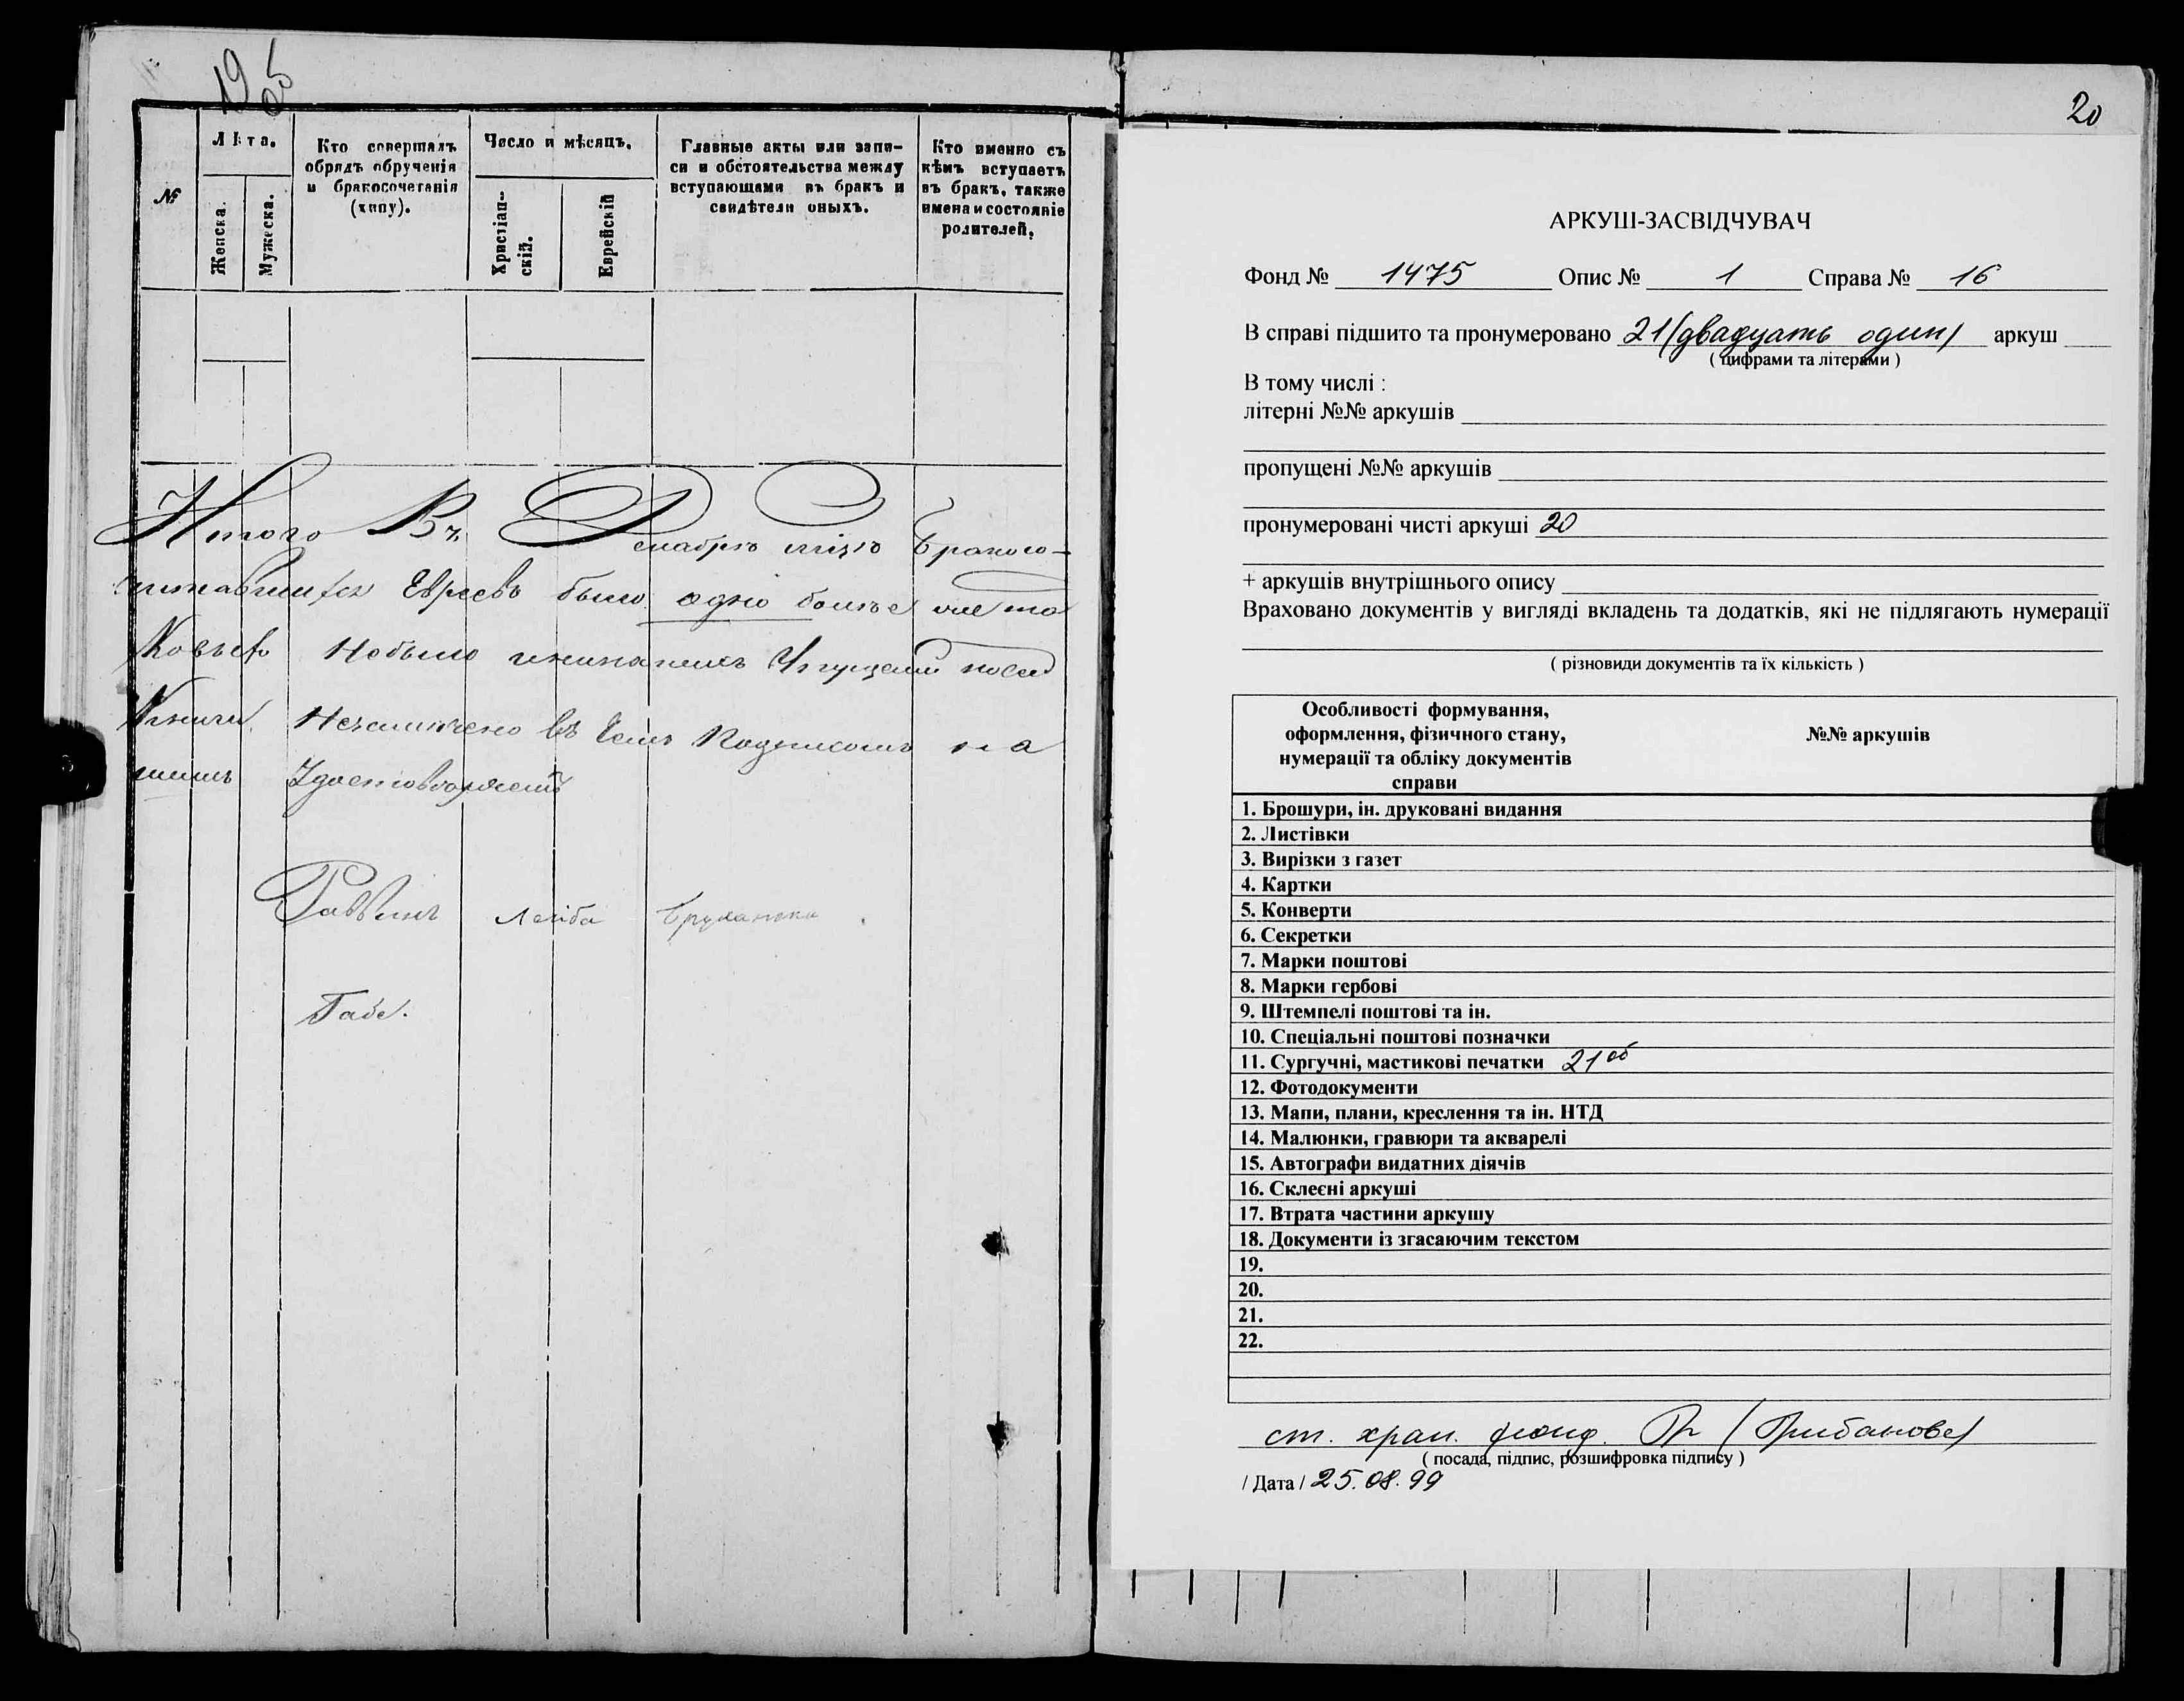 19 об
№
Лѣта.
Женска.
Мужеска.
Кто совершалъ
обрядъ обрученія
и бракосочетанія
(хупу).
Число и мѣсяцъ.
Христіан-
скій.
Еврейскій
Главные акты или запи-
си и обстоятельства между
вступающими въ бракъ и
свидѣтели оныхъ.
Кто именно съ
кѣмъ вступаетъ
въ бракъ, также
имена и состояніе
родителей.
Итого Въ Декабрѣ мѣцѣ Бракосо-
Евреевъ было одно болѣе
Небыло
въ чемъ Подписомъ
Раввинъ Лейба
20
АРКУШ-ЗАСВІДЧУВАЧ
Фонд № 1475 Опис № 1 Справа № 16
В справі підшито та пронумеровано 21 (двадцать один) аркуш
( цифрами та літерами )
В тому числі :
літерні №№ аркушів
пропущені №№ аркушів
пронумеровані чисті аркуші 20
+ аркушів внутрішнього опису
Враховано документів у вигляді вкладень та додатків, які не підлягають нумерації
( різновиди документів та їх кількість )
Особливості формування,
оформлення, фізичного стану,
нумерації та обліку документів
справи
№№ аркушів
1. Брошури, ін. друковані видання
2. Листівки
3. Вирізки з газет
4. Картки
5. Конверти
6. Секретки
7. Марки поштові
8. Марки гербові
9. Штемпелі поштові та ін.
10. Спеціальні поштові позначки
11. Сургучні, мастикові печатки 21 об
12. Фотодокументи
13. Мапи, плани, креслення та ін. НТД
14. Малюнки, гравюри та акварелі
15. Автографи видатних діячів
16. Склеєні аркуші
17. Втрата частини аркушу
18. Документи із згасаючим текстом
19.
20.
21.
22.
ст. хран. фонд.
( посада, підпис, розшифровка підпису )
/ Дата / 25.08.99